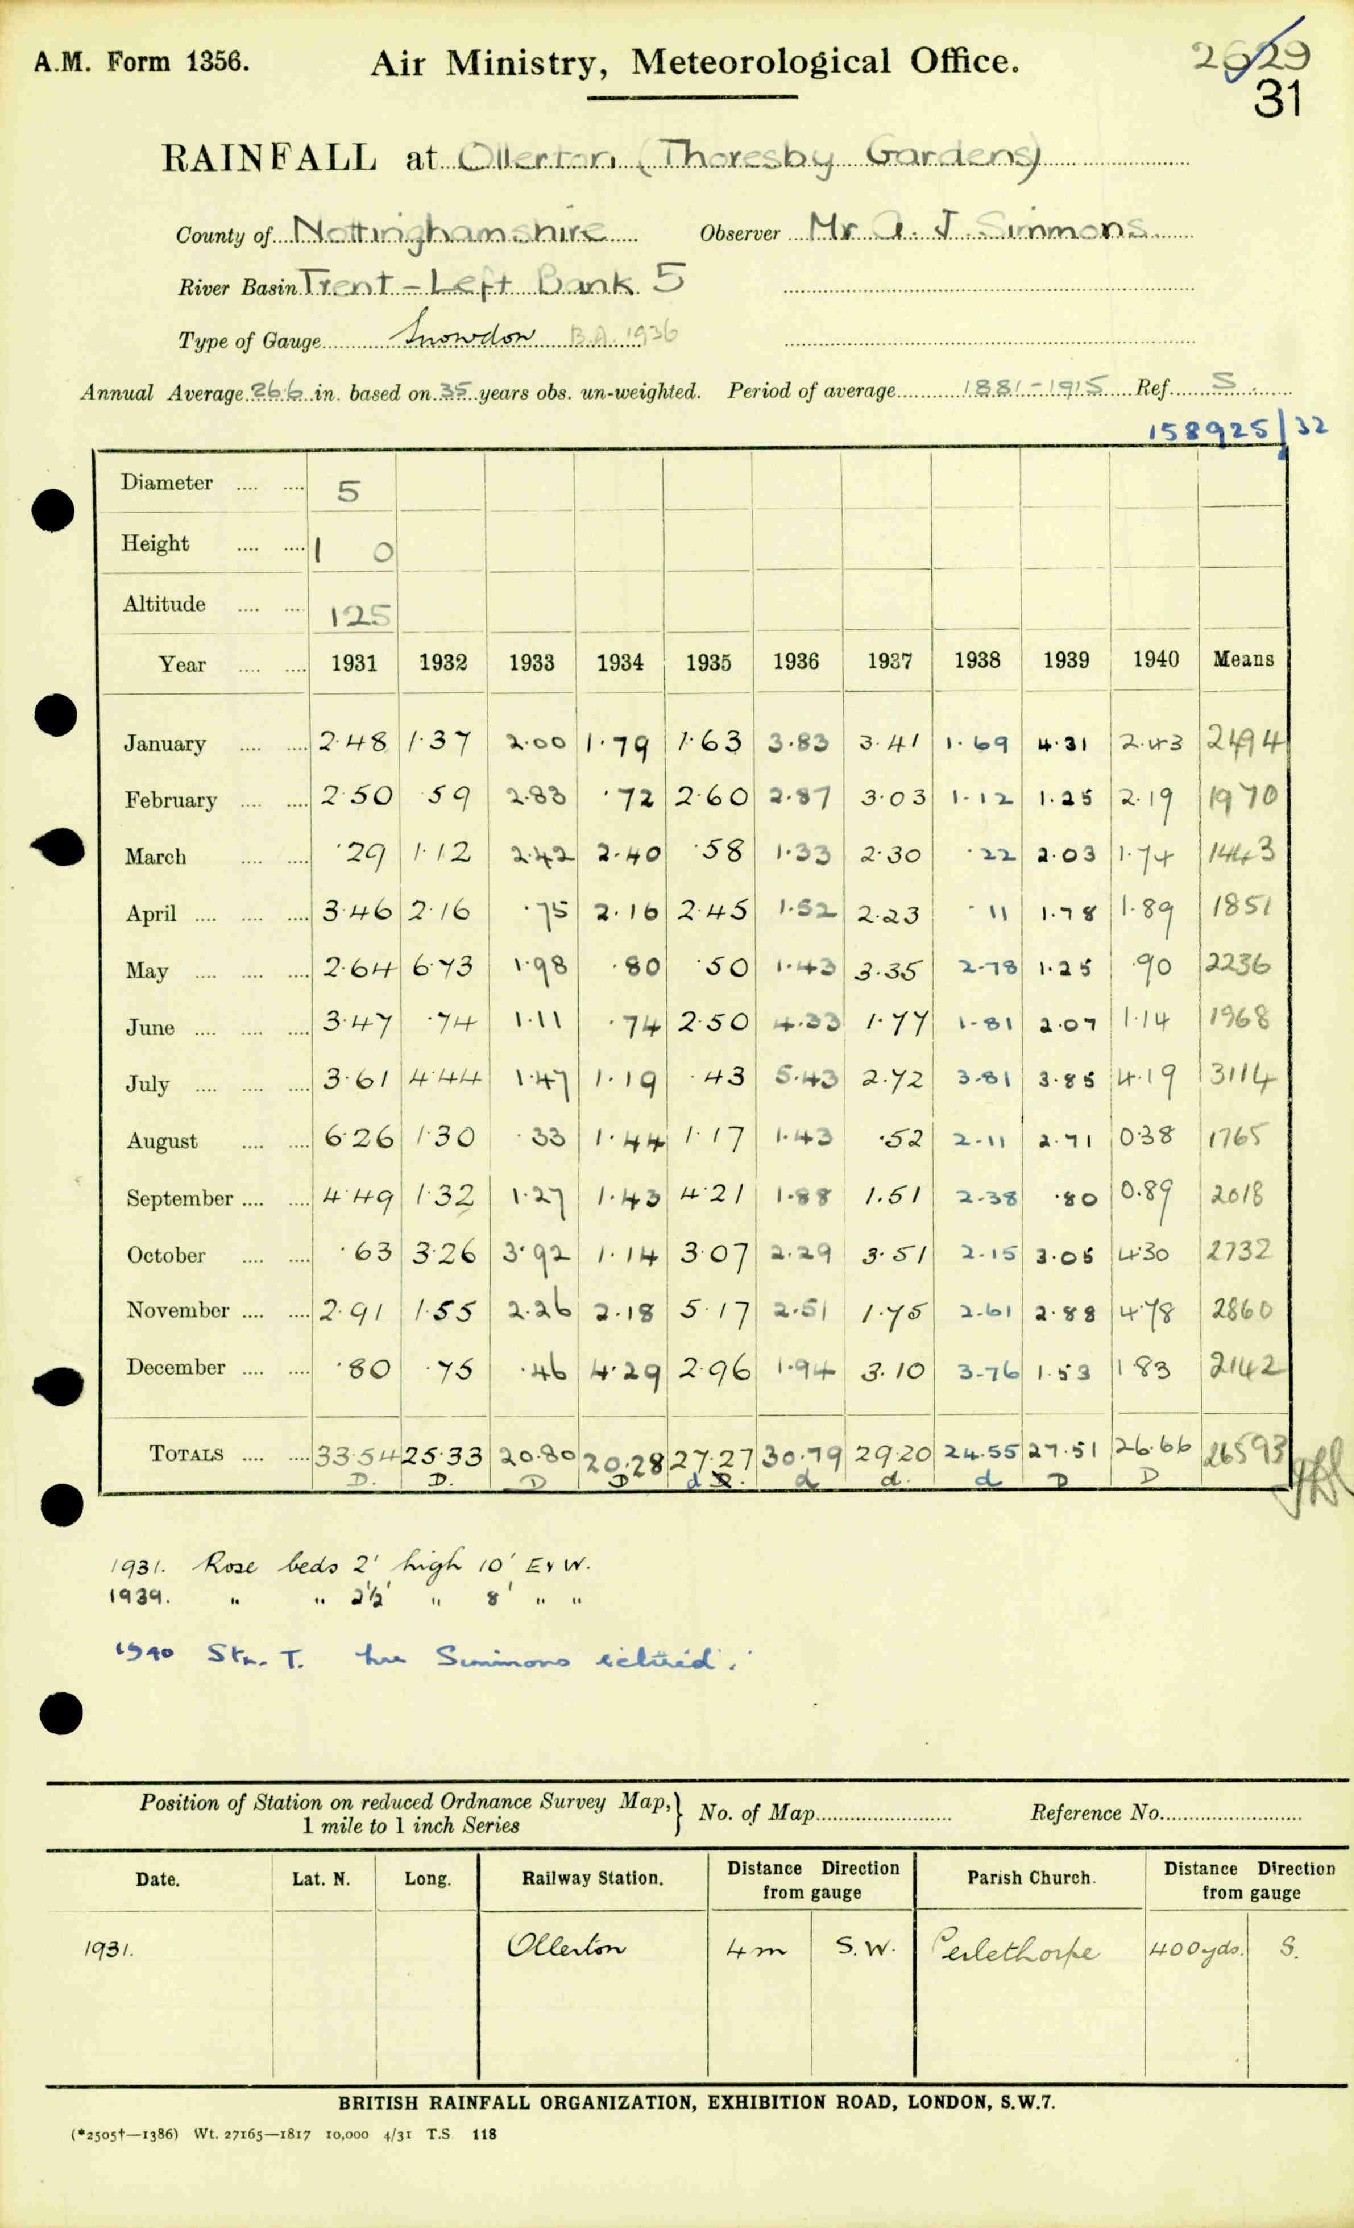 A.M. Form 1356. Air Ministry, Meteorological Office. 2629
31
RAINFALL at Ollerton (Thoresby Gardens)
County of Nottinghamshire Observer Mr A. J. Simmons
River Basin Trent – Left Bank 5
Type of Gauge Snowdon B.A. 1936
Annual Average 26.6 in. based on 35 years obs. un-weighted. Period of average 1881-1915 Ref. S
158925/32
Diameter 5
Height 1 0
Altitude 125
Year 1931 1932 1933 1934 1935 1936 1937 1938 1939 1940 Means
January 2.48 1.37 2.00 1.79 1.63 3.83 3.41 1.69 4.31 2.43 2494
February 2.50 .59 2.83 .72 2.60 2.87 3.03 1.12 1.25 2.19 1970
March .29 1.12 2.42 2.40 .58 1.33 2.30 .22 2.03 1.74 1443
April 3.46 2.16 .75 2.16 2.45 1.52 2.23 .11 1.78 1.89 1851
May 2.64 6.73 1.98 .80 .50 1.43 3.35 2.78 1.25 .90 2236
June 3.47 .74 1.11 .74 2.50 4.33 1.77 1.81 2.07 1.14 1968
July 3.61 4.44 1.47 1.19 .43 5.43 2.72 3.81 3.85 4.19 3114
August 6.26 1.30 .33 1.44 1.17 1.43 .52 2.11 2.71 0.38 1765
September 4.49 1.32 1.27 1.43 4.21 1.88 1.51 2.38 .80 0.89 2018
October .63 3.26 3.92 1.14 3.07 2.29 3.51 2.15 3.05 4.30 2732
November 2.91 1.55 2.26 2.18 5.17 2.51 1.75 2.61 2.88 4.78 2860
December .80 .75 .46 4.29 2.96 1.94 3.10 3.76 1.53 1.83 2142
TOTALS 33.54 25.33 20.80 20.28 27.27 30.79 29.20 24.55 27.51 26.66 26593
D. D. D D d D. d d. d D D
1931. Rose beds 2' high 10' E & W.
1939. " " 2½' " 8' " "
1940 Stn. T. Mr Simmons retired.
Position of Station on reduced Ordnance Survey Map, } No. of Map Reference No.
1 mile to 1 inch Series
Date. Lat. N. Long. Railway Station. Distance Direction from gauge Parish Church. Distance Direction from gauge
1931. Ollerton 4m S.W. Perlethorpe 400yds. S.
BRITISH RAINFALL ORGANIZATION, EXHIBITION ROAD, LONDON, S.W.7.
(*2505†—1386) Wt. 27165—1817 10,000 4/31 T.S. 118